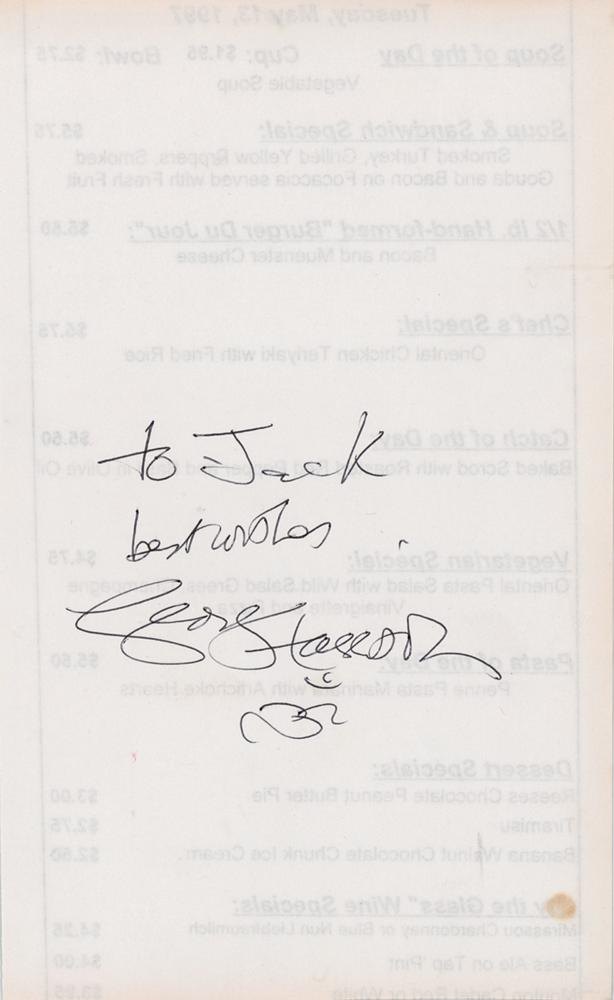 Tuesday, May 13, 1997
Soup of the Day Cup: $1.95 Bowl: $2.75
Vegetable Soup
Soup & Sandwich Special: $5.75
Smoked Turkey, Grilled Yellow Peppers, Smoked
Gouda and Bacon on Focaccia served with Fresh Fruit
1/2 lb. Hand-formed "Burger Du Jour": $5.50
Bacon and Muenster Cheese
Chef's Special: $5.75
Oriental Chicken Teriyaki with Fried Rice
Catch of the Day $5.50
Baked Scrod with Roasted Red Pepper and Basil in Olive Oil
to Jack
best wishes
Vegetarian Special: $4.75
Oriental Pasta Salad with Wild Salad Greens, Champagne
Vinaigrette and Pizza
George Harrison
Pasta of the Day: $5.50
Penne Pasta Marinara with Artichoke Hearts
Dessert Specials:
Reeses Chocolate Peanut Butter Pie $3.00
Tiramisu $2.75
Banana Walnut Chocolate Chunk Ice Cream. $2.50
By the Glass" Wine Specials:
Mirassou Chardonnay or Blue Nun Liebfraumilch $4.25
Bass Ale on Tap 'Pint $4.00
Mouton Cadet Red or White